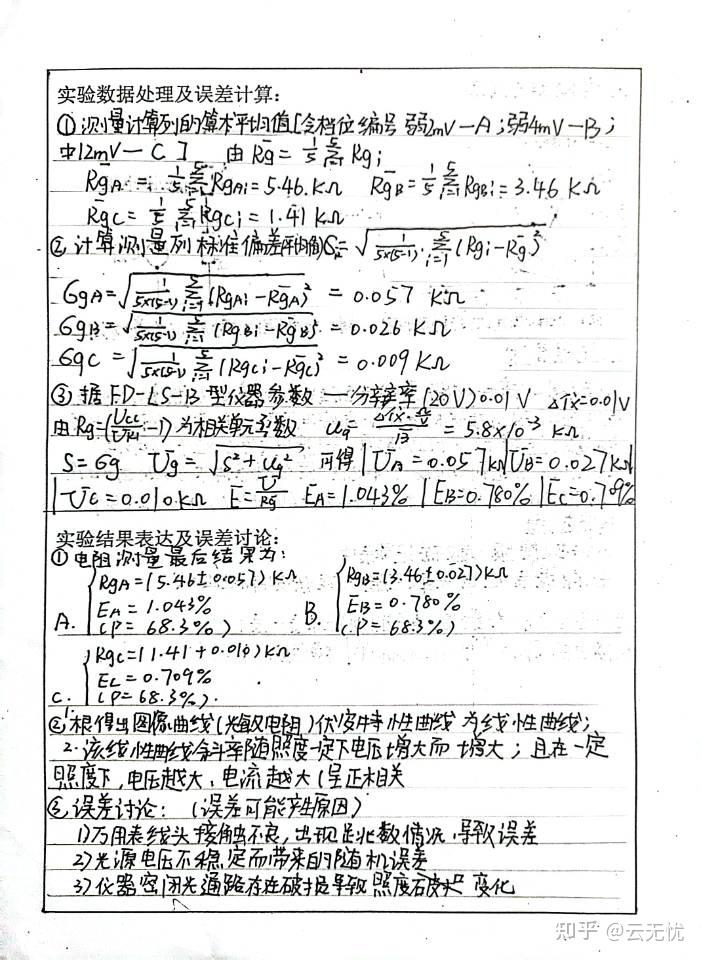 实验数据处理及误差计算:
① 测量计算列的算术平均值[令档位编号 弱2mV—A;弱4mV—B;
中12mV—C] 由 R̄g = 1/5 Σ(i=1→5) Rgi
R̄gA = 1/5 Σ(i=1→5) RgAi = 5.46 KΩ R̄gB = 1/5 Σ(i=1→5) RgBi = 3.46 KΩ
R̄gC = 1/5 Σ(i=1→5) Rgci = 1.41 KΩ
② 计算测量列标准偏差 = √(1/(5×(5-1)) · Σ(i=1→5) (Rgi-R̄g)²)
σgA = √(1/(5×(5-1)) Σ(i=1→5) (RgAi-R̄gA)²) = 0.057 KΩ
σgB = √(1/(5×(5-1)) Σ(i=1→5) (RgBi-R̄gB)²) = 0.026 KΩ
σgC = √(1/(5×(5-1)) Σ(i=1→5) (Rgci-R̄gc)²) = 0.009 KΩ
③ 据 FD-LS-B 型仪器参数 — 分辨率 (20V) 0.01V Δx=0.01V
由 Rg= 为相关单元 = 5.8×10⁻³ KΩ
S=σg Ūg = √(S²+Ug²) 可得 |ŪA=0.057KΩ|ŪB=0.027KΩ|
|ŪC=0.010KΩ Ē=Ū/Rg ĒA=1.043% |ĒB=0.780% |ĒC=0.709%
实验结果表达及误差讨论:
① 电阻测量最后结果为:
RgA=(5.46±0.057)KΩ RgB=(3.46±0.027)KΩ
EA=1.043% EB=0.780%
A. (P=68.3%) B. (P=68.3%)
Rgc=(1.41+0.010)KΩ
EC=0.709%
C. (P=68.3%).
② 1 根得出图像曲线(光敏电阻)伏安特性曲线为线性曲线;
2. 该线性曲线斜率随照度一定下电压增大而增大;且在一定
照度下,电压越大,电流越大(呈正相关
③ 误差讨论: (误差可能产生原因)
1)万用表线头接触不良,出现 数情况,导致误差
2)光源电压不稳定而带来的随机误差
3)仪器密闭光通路存在破损导致照度 变化
知乎 @云无忧